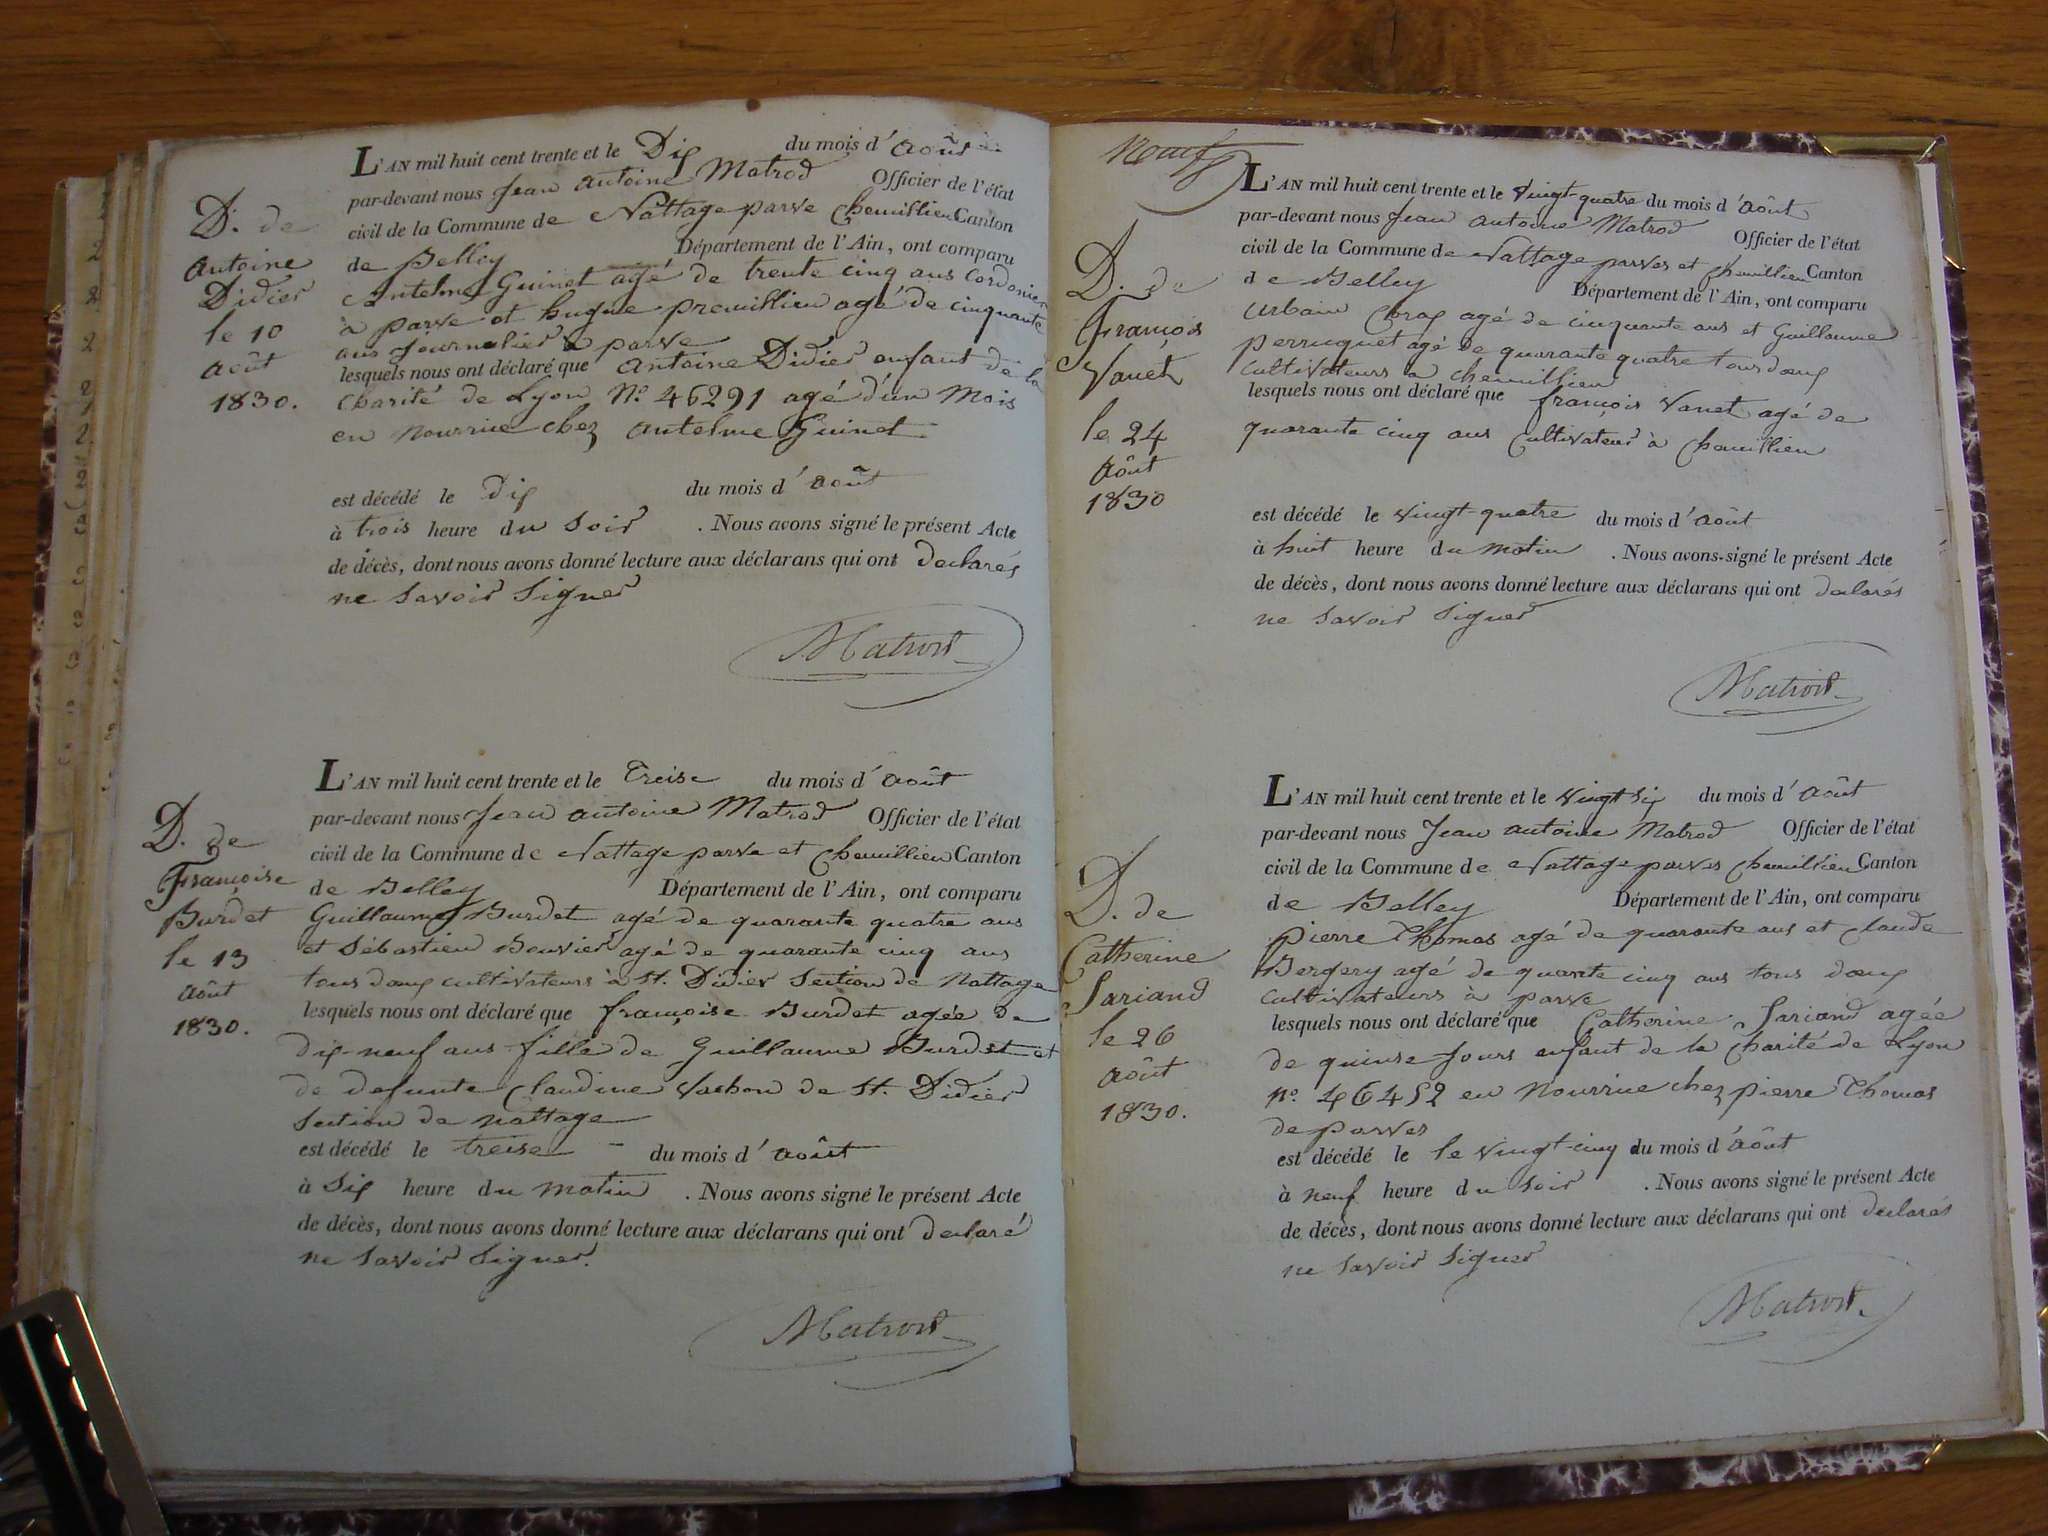 L'AN mil huit cent trente et le Dix du mois d'Août
par-devant nous Jean antoine Matrod Officier de l'état
civil de la Commune de Nattage parve Chemillieu Canton
de Belley Département de l'Ain, ont comparu
Antelme Guinet agé de trente cinq ans Cordonier
à parve et hugue premillieu agé de cinquante
ans Journalier a parve
lesquels nous ont déclaré que Antoine Didier enfant de la
Charité de Lyon N.º 46291 agé d'un Mois
en nourrice chez Antelme Guinet
est décédé le Dix du mois d'Août
à trois heure du Soir . Nous avons signé le présent Acte
de décès, dont nous avons donné lecture aux déclarans qui ont declarés
ne Savoir Signer
Matrod
D. de
Antoine
Didier
le 10
Août
1830.
L'AN mil huit cent trente et le Treise du mois d'Août
par-devant nous Jean antoine Matrod Officier de l'état
civil de la Commune de Nattage parve et Chemillieu Canton
de Belley Département de l'Ain, ont comparu
Guillaume Burdet agé de quarante quatre ans
et Sébastien Bouvier agé de quarante cinq ans
tous deux cultivateurs à St. Didier Section de Nattage
lesquels nous ont déclaré que françoise Burdet agée de
dix-neuf ans fille de Guillaume Burdet et
de defunte Claudine Vachon de St. Didier
Section de nattage
est décédé le treise du mois d'Août
à Six heure du matin . Nous avons signé le présent Acte
de décès, dont nous avons donné lecture aux déclarans qui ont declaré
ne Savoir Signer.
Matrod
D. de
Françoise
Burdet
le 13
Août
1830.
Neuf
L'AN mil huit cent trente et le Vingt-quatre du mois d'Août
par-devant nous Jean Antoine Matrod Officier de l'état
civil de la Commune de Nattage parves et Chemillieu Canton
de Belley Département de l'Ain, ont comparu
Urbain agé de cinquante ans et Guillaume
perruquet agé de quarante quatre tous deux
Cultivateurs a chemillieu
lesquels nous ont déclaré que françois Vanet agé de
quarante cinq ans Cultivateur à Chemillieu
est décédé le vingt-quatre du mois d'Août
à huit heure du matin . Nous avons-signé le présent Acte
de décès, dont nous avons donné lecture aux déclarans qui ont declarés
ne Savoir Signer
Matrod
D. de
François
Vanet
le 24
Août
1830
L'AN mil huit cent trente et le Vingt Six du mois d'Août
par-devant nous Jean antoine Matrod Officier de l'état
civil de la Commune de Nattage parves Chemillieu Canton
de Belley Département de l'Ain, ont comparu
pierre Thomas agé de quarante ans et Claude
Bergery agé de quarante cinq ans tous deux
Cultivateurs à parve
lesquels nous ont déclaré que Catherine Sariand agée
de quinse Jours enfant de la Charité de Lyon
n.º 46452 en Nourrice chez pierre Thomas
de parves
est décédé le le vingt-cinq du mois d'Août
à neuf heure du Soir . Nous avons signé le présent Acte
de décès, dont nous avons donné lecture aux déclarans qui ont declarés
ne Savoir Signer
Matrod
D. de
Catherine
Sariand
le 26
Août
1830.